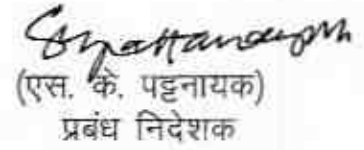 (एस. के. पट्टनायक)
प्रबंध निदेशक